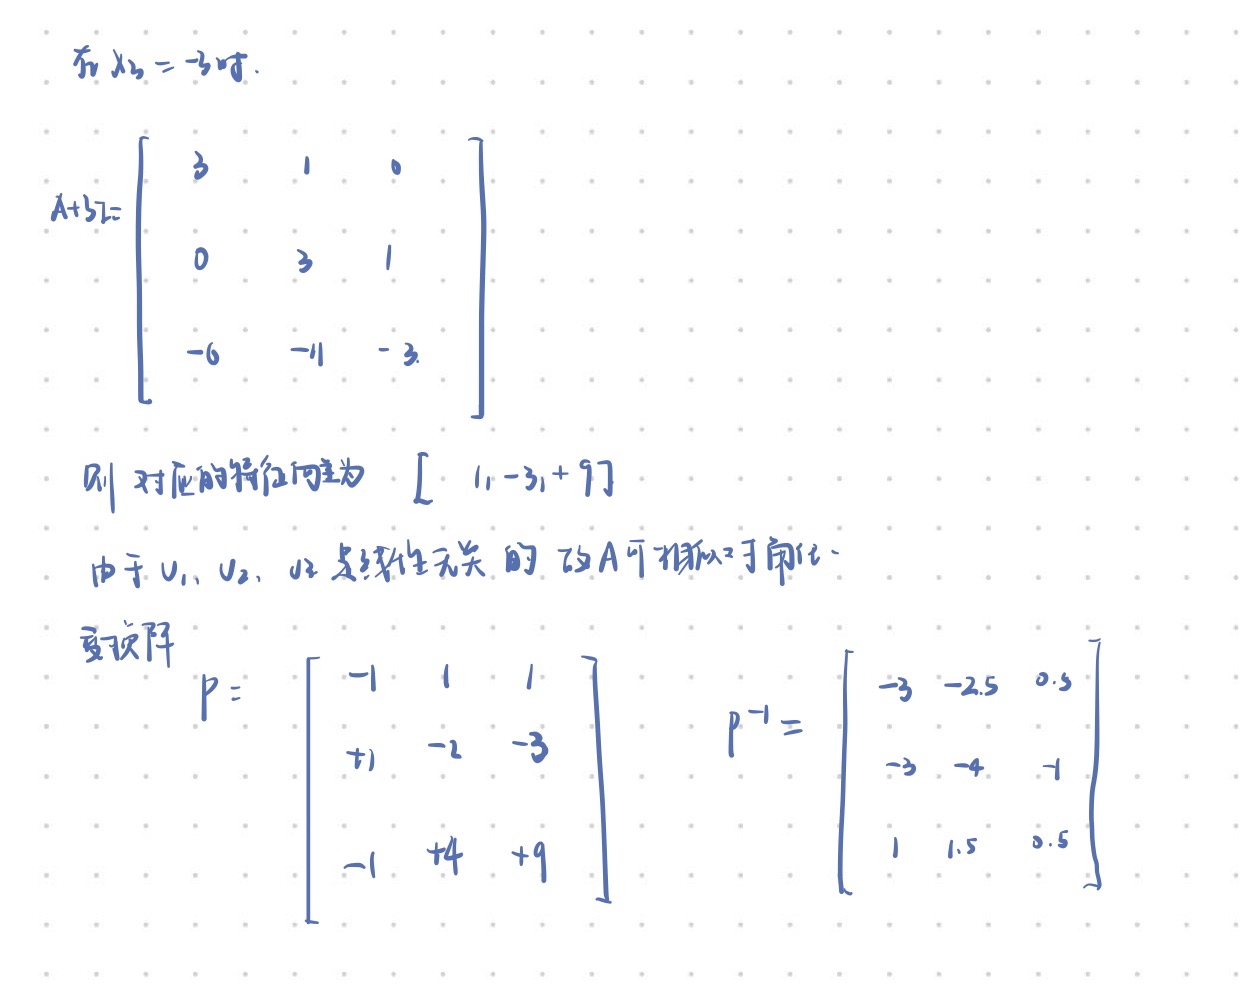 在 λ3 = -3时.
3 1 0
A+3I=
0 3 1
-6 -11 -3.
则 对应的特征向量为 [ 1, -3, +9]
由于 U1、U2、U3 是线性无关 的 故 A 可相似对角化.
变换阵
P = -1 1 1
+1 -2 -3
-1 +4 +9
P-1 = -3 -2.5 0.5
-3 -4 -1
1 1.5 0.5